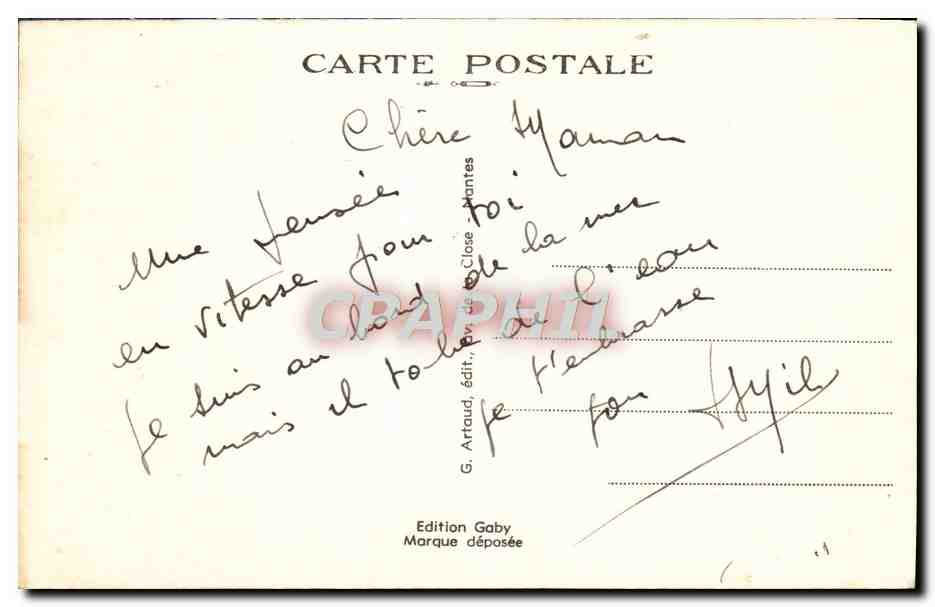 CARTE POSTALE
Chère Maman
Une pensée
en vitesse pour toi
Je suis au bord de la mer
mais il tobe de l'eau
je t'embrasse
ton
G. Artaud, édit., av. de Close - Nantes
CPAPHIL
Edition Gaby
Marque déposée